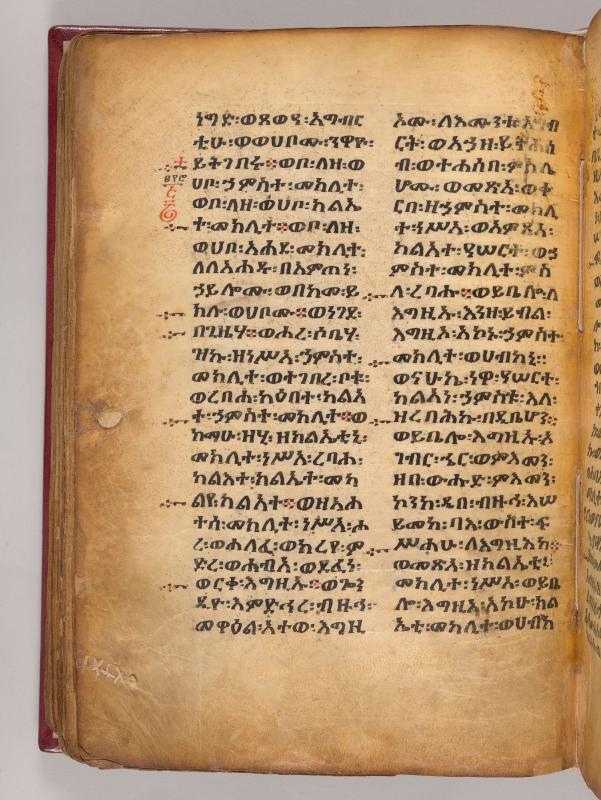 ነግድ፡ወጸወዓ፡አግብር
ቲሁ፡ወወሀቦሙ፡ንዋዮ፡
ይትገበሩ፡፡ወቦ፡ለዘ፡ወ
ሀቦ፡ኃምስተ፡መክሊተ፡
ወቦ፡ለዘ፡ወሀቦ፡ክልኤ
ተ፡መክሊተ፡፡ወቦ፡ለዘ፡
ወሀቦ፡አሐደ፡መክሊተ፡
ለለአሐዱ፡በአምጠነ፡
ኃይሎሙ፡ወበከመ፡ይ
ክሉ፡ወሀቦሙ፡፡ወነገደ፡
በጊዜሃ፡፡ወሖረ፡ሶቤሃ፡
ዝኩ፡ዘነሥአ፡ኃምስተ፡
መክሊተ፡ወተገበረ፡ቦቱ፡
ወረብሐ፡ካዕበተ፡ካልአ
ተ፡ኃምስተ፡መክሊተ፡፡ወ
ከማሁ፡ዘሂ፡ዘክልኤቲኒ፡
መክሊተ፡ነሥአ፡ረባሐ፡
ካልአተ፡ክልኤተ፡መክ
ካልአተ፡፡ወዘአሐ
ተሰ፡መክሊተ፡ነሥአ፡ሖ
ረ፡ወሐለፈ፡ወከረየ፡ም
ድረ፡ወኀብአ፡ወደፈነ፡
ወርቀ፡እግዚኡ፡፡ወጐን
ዲዮ፡እምድኅረ፡ብዙኅ፡
መዋዕል፡አተወ፡እግዚ
ኦሙ፡ለእሙንቱ፡አግብ
ርት፡ወአኃዘ፡ይትሐሰ
ብ፡ወተሐሰበ፡ምስሌ
ሆሙ፡ወመጽአ፡ወቀ
ርበ፡ዘኃምስተ፡መክሊ
ተ፡ነሥአ፡ወአምጽአ፡
ካልአተ፡ኃምስተ፡ወኃ
ምስተ፡መክሊተ፡ዘረባሐ፡፡ወይቤሎ፡
እግዚኡ፡እንዘ፡ይብል፡
እግዚኦ፡አኮኑ፡ኃምስተ፡
መክሊተ፡ወሀብከኒ፡፡
ወናሁኬ፡ነዋ፡
ካልአነ፡ኃምስቱ፡እለ፡
ዘረባሕኩ፡በዲቤሆን፡፡
ወይቤሎ፡እግዚኡ፡ኦ
ገብር፡ኄር፡ወምእመን፡
ዘበ፡ውሑድ፡ምእመን፡
ኮንከ፡ዲበ፡ብዙኅ፡እሠ
ይመከ፡ባእ፡ውስተ፡ፍ
ሥሐሁ፡ለእግዚእከ፡፡
ወመጽአ፡ዘክልኤቲ፡
መክሊተ፡ነሥአ፡ወይቤ
ሎ፡እግዚኦ፡አኮሁ፡ክል
ኤተ፡መክሊተ፡ወሀብከ